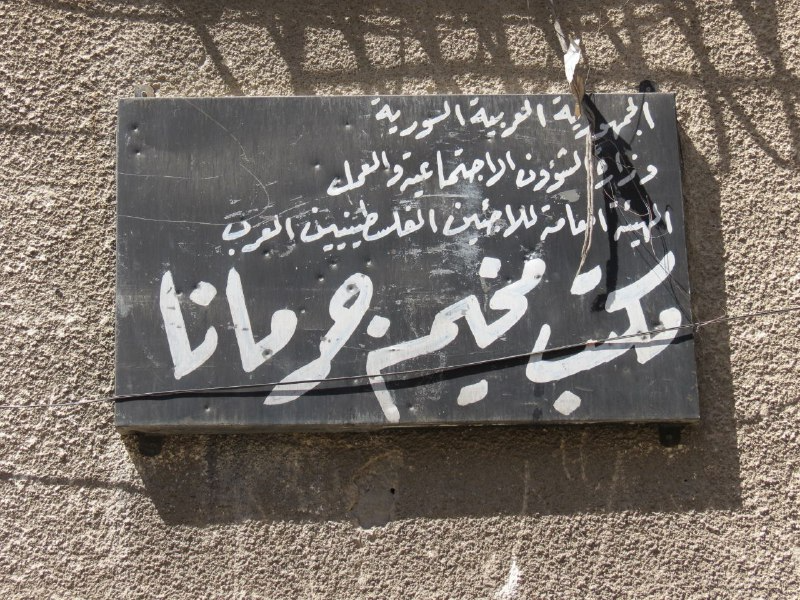 الجمهورية العربية السورية
وزارة الشؤون الاجتماعية والعمل
الهيئة العامة للاجئين الفلسطينيين العرب
مكتب مخيم جرمانا